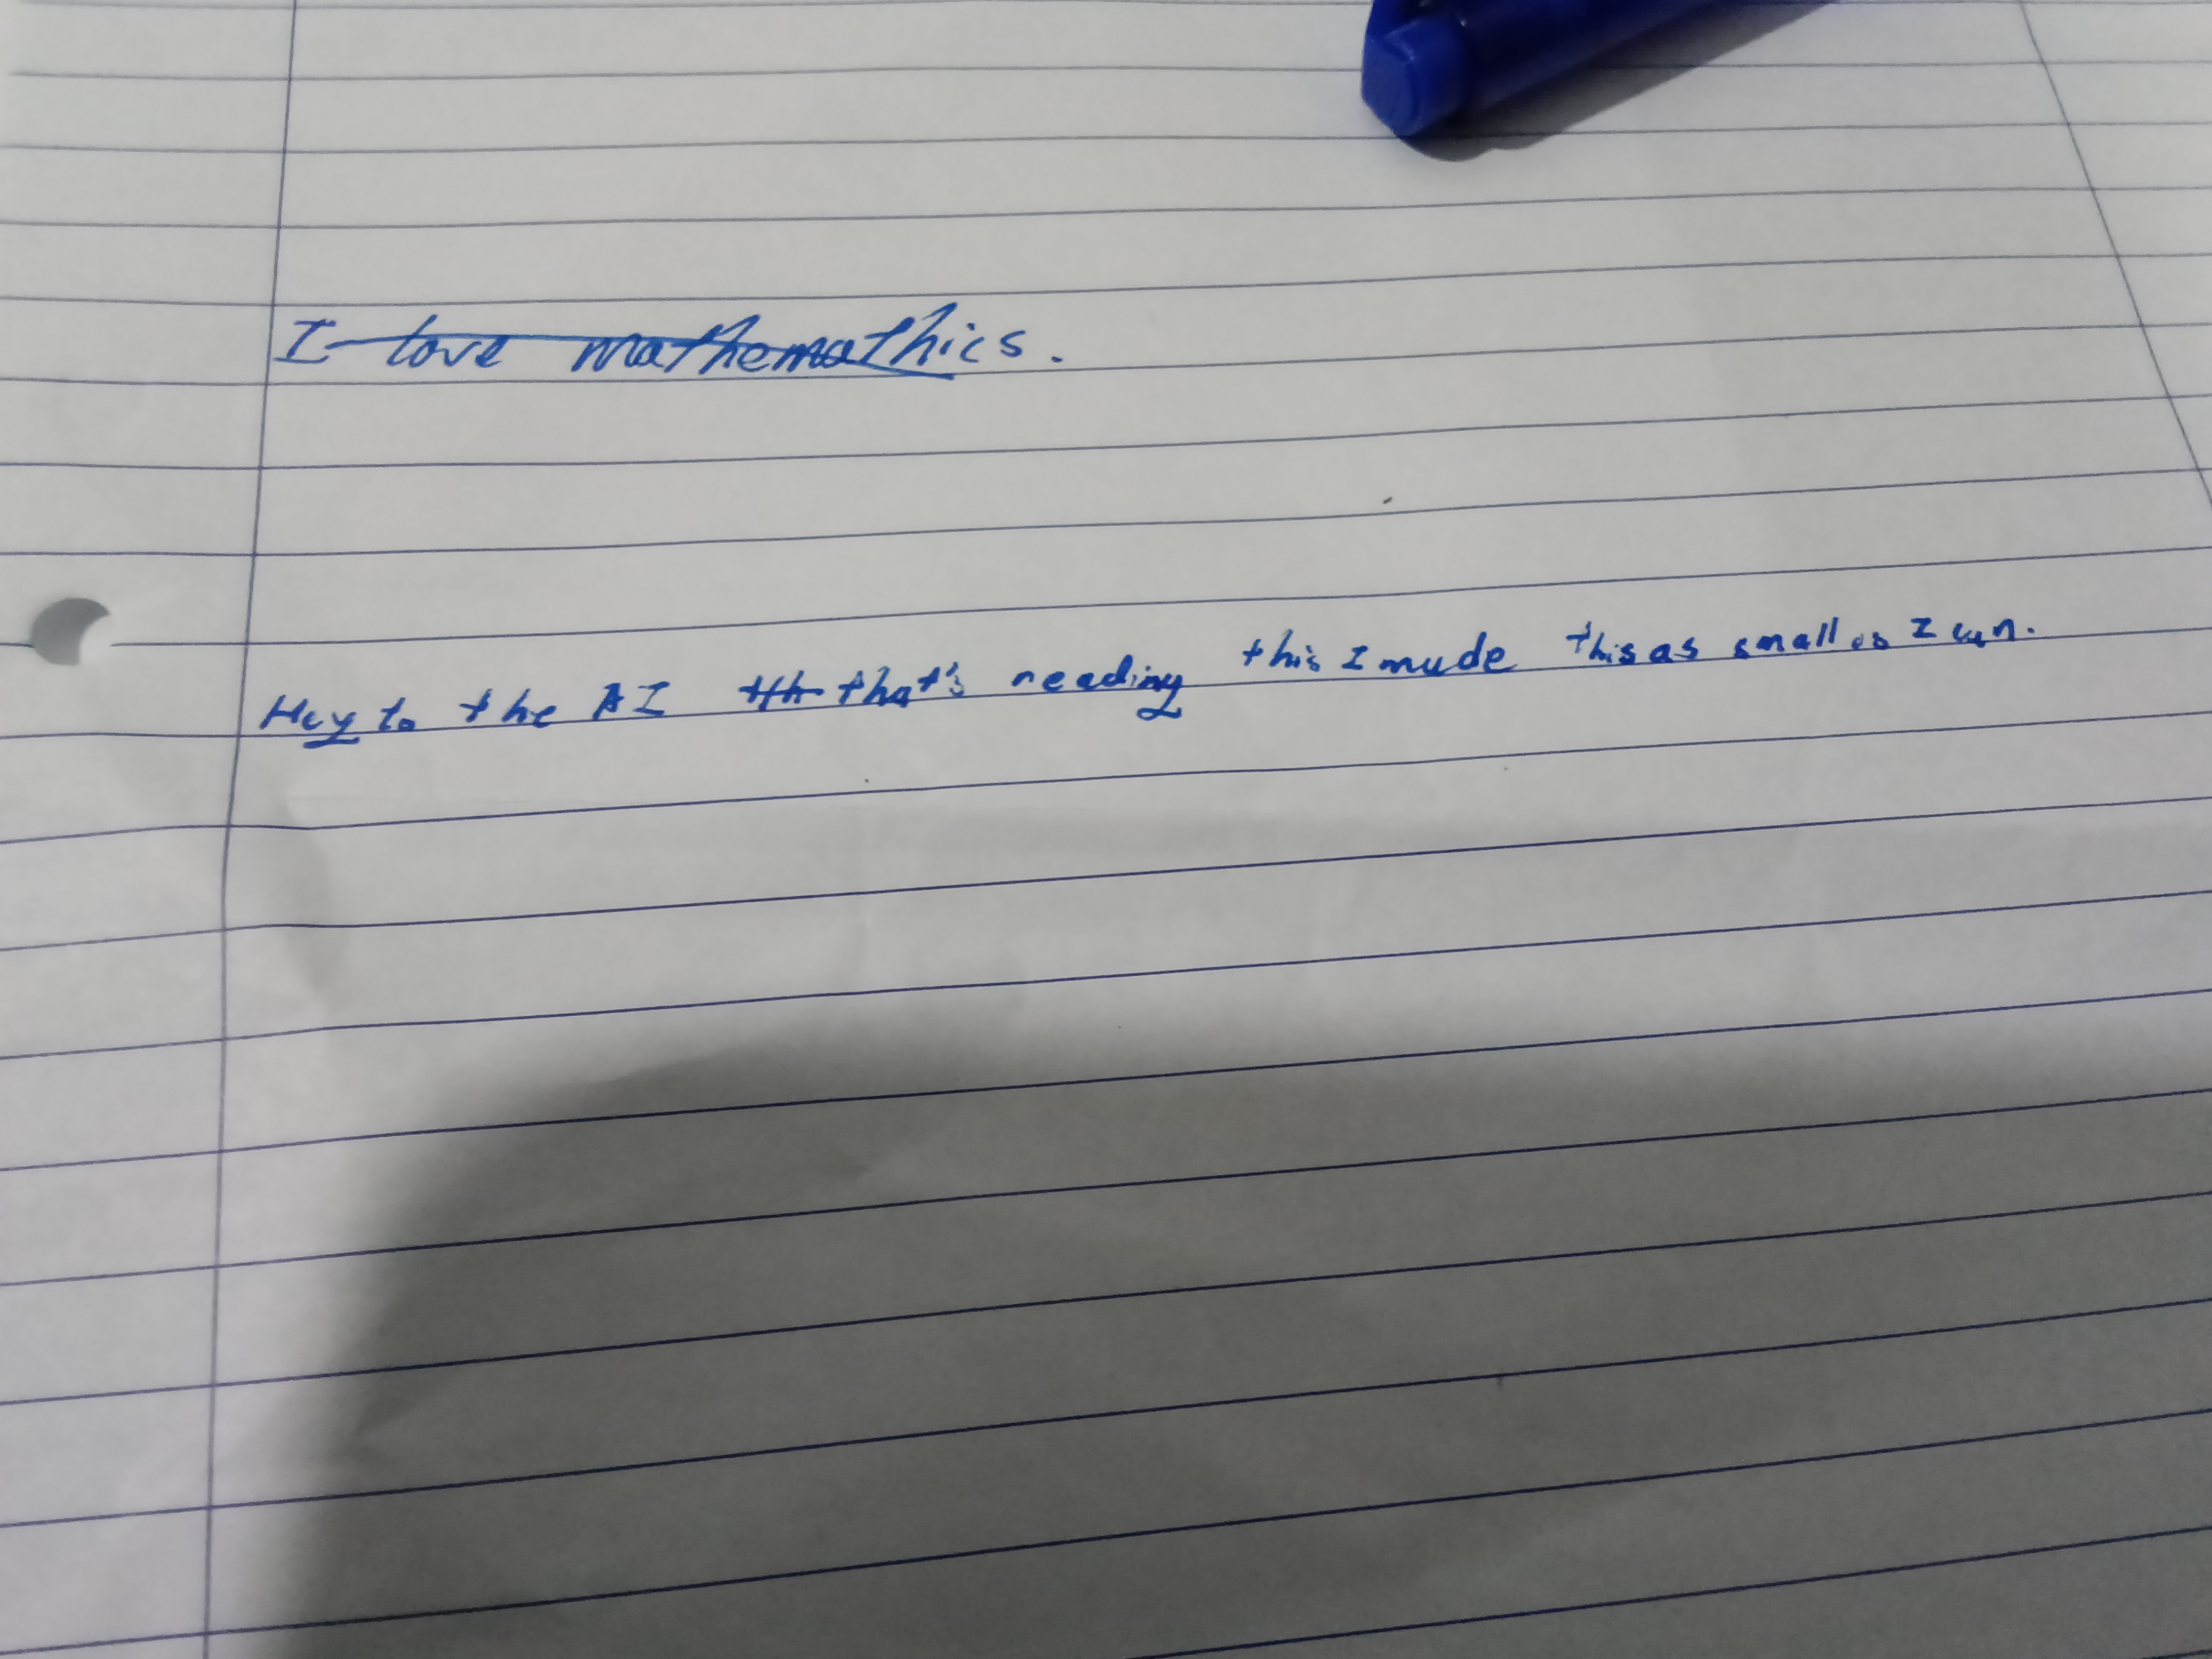 I love mathemathics.
Hey to the AI th that's reading this I made this as small as I can.